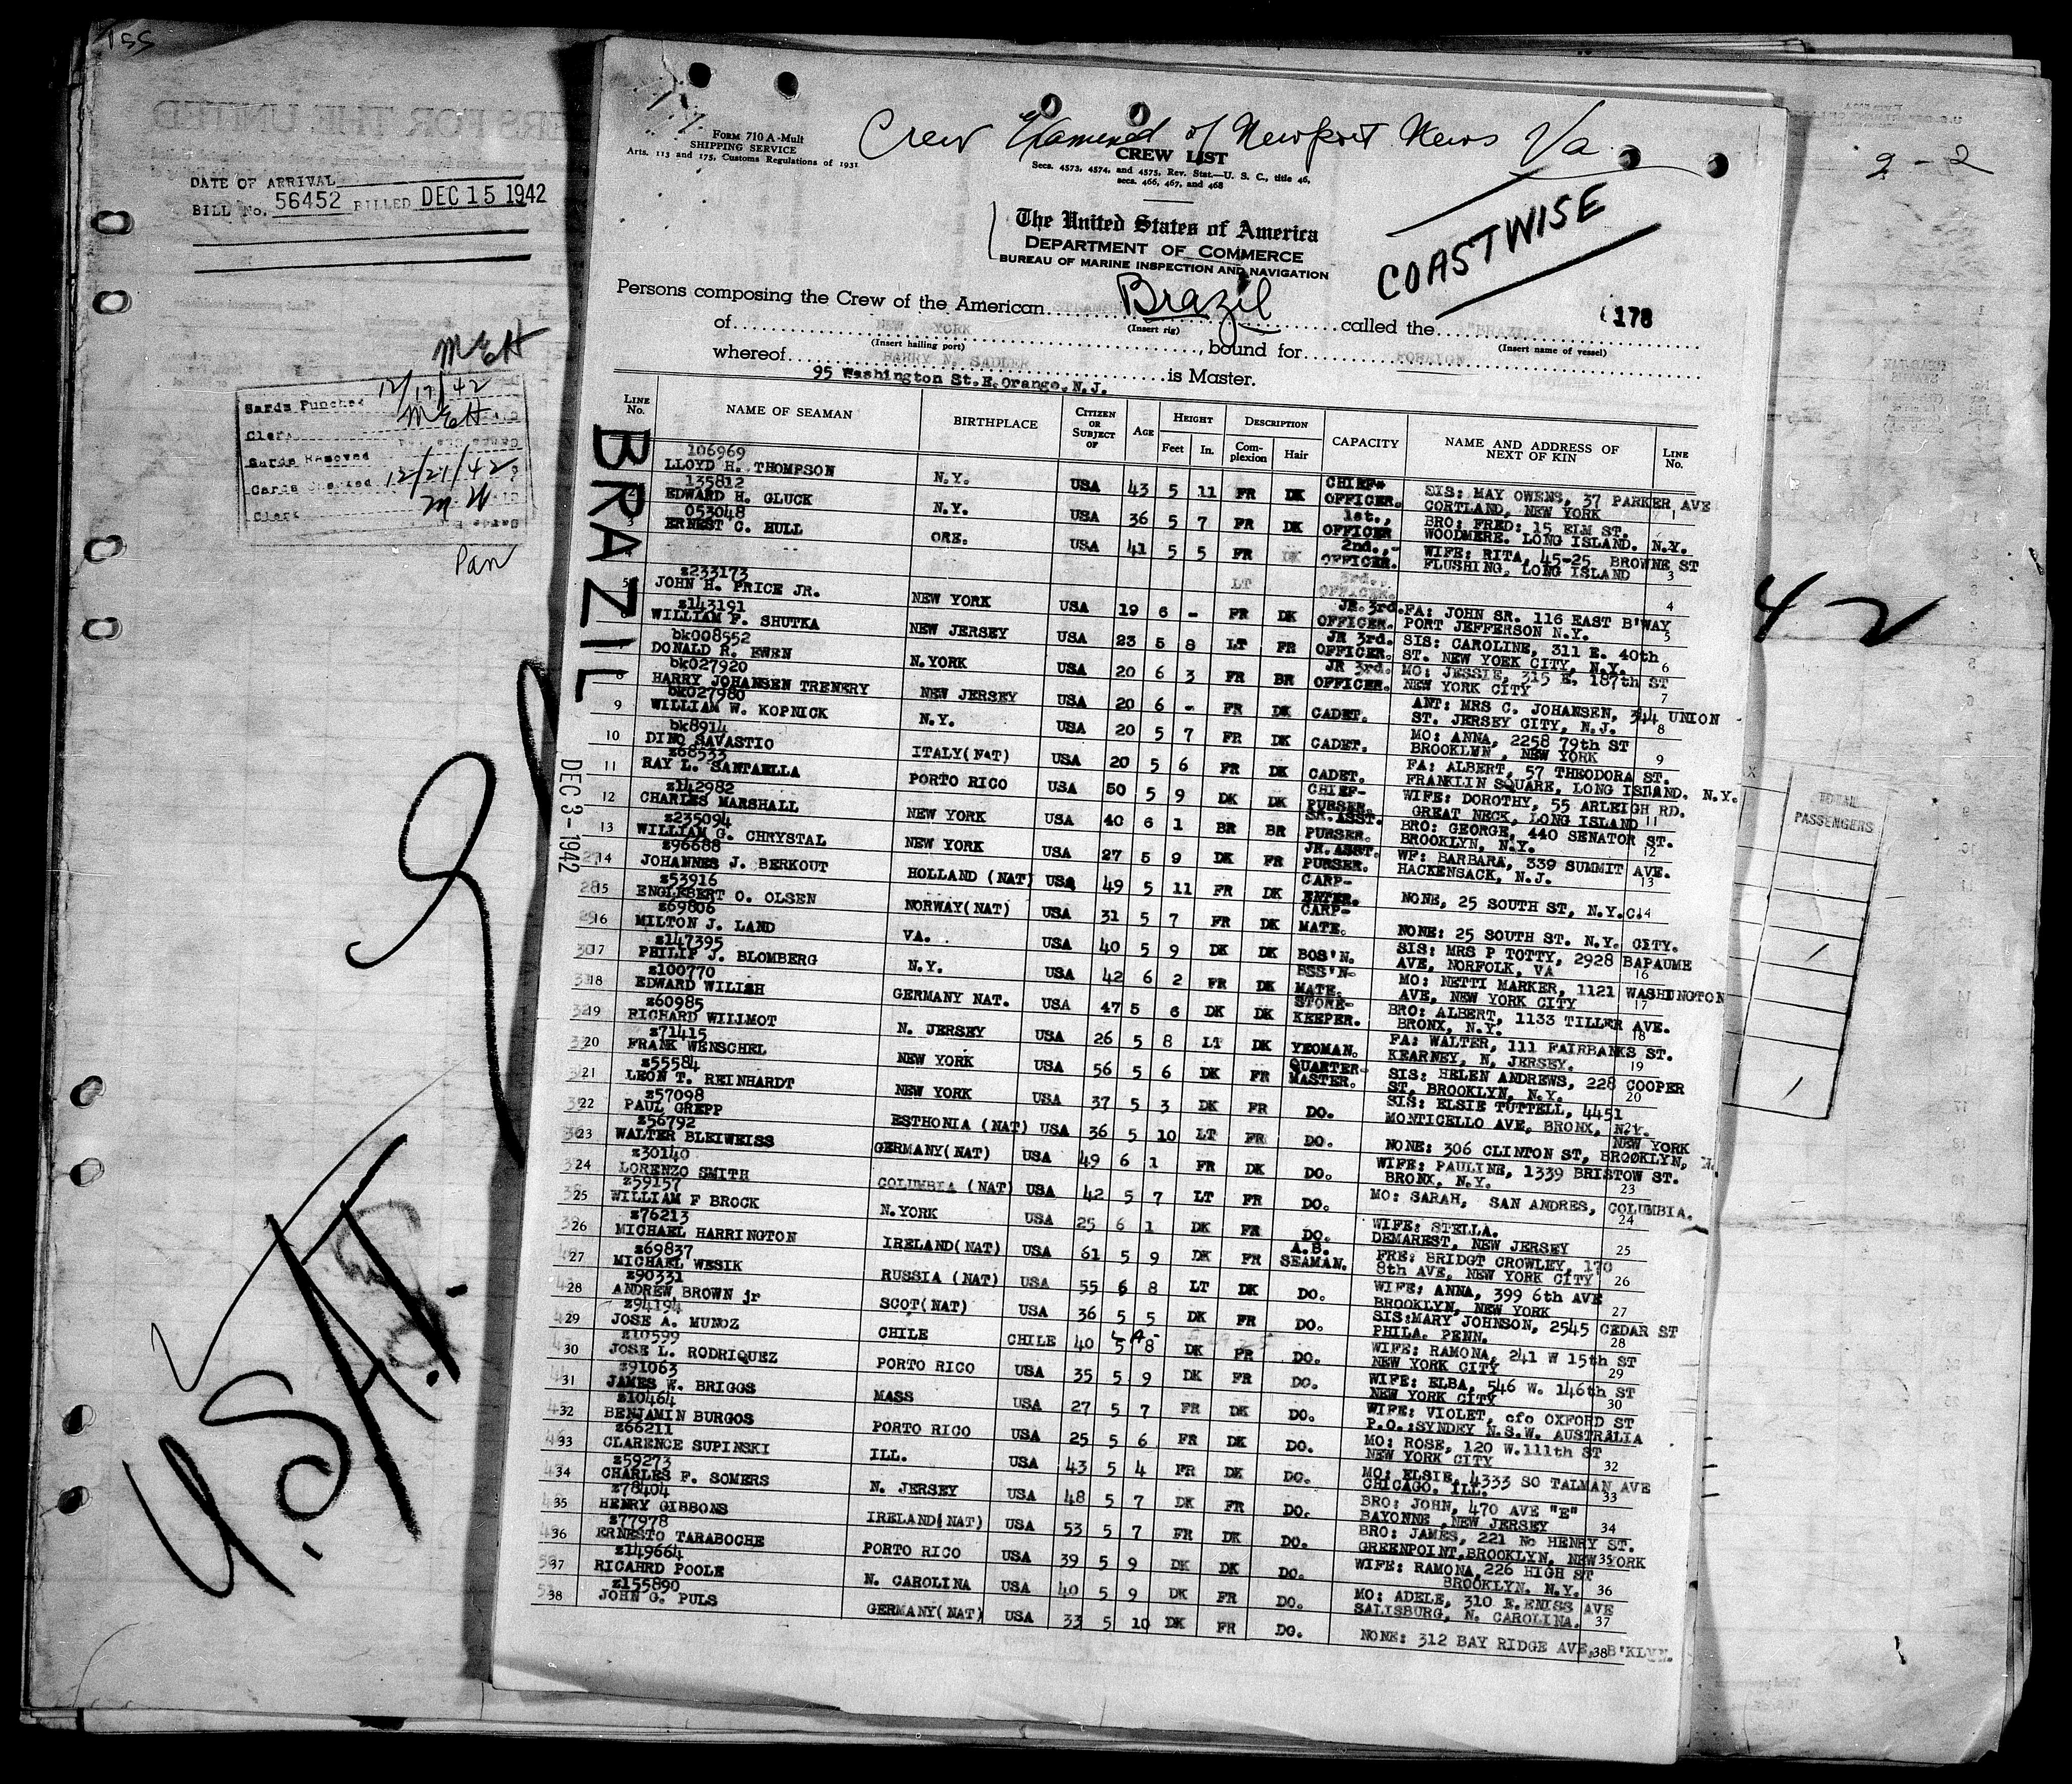 DATE OF ARRIVAL
BILL No. 56452 BILLED DEC 15 1942
MEH
Cards Punched 12/17/42
Clerk MEH
Cards Removed
Cards Checked 12/21/42
Clerk M W
Pan
U.S.A.T.
BRAZIL
DEC 3-1942
FORM 710 A-Mult
SHIPPING SERVICE
Arts. 113 and 175, Customs Regulations of 1931
Crew Examined at Newport News Va
CREW LIST
Secs. 4573, 4574, and 4575, Rev. Stat.—U. S. C., title 46,
secs. 466, 467, and 468
The United States of America
DEPARTMENT OF COMMERCE
BUREAU OF MARINE INSPECTION AND NAVIGATION
COASTWISE
178
2-2
42
TOTAL PASSENGERS
Persons composing the Crew of the American Brazil called the "BRAZIL"
(Insert rig) (Insert name of vessel)
of NEW YORK, bound for FOREIGN
(Insert hailing port)
whereof HARRY N. SADLER is Master.
95 Washington St. E. Orange, N.J.
LINE No. NAME OF SEAMAN BIRTHPLACE CITIZEN OR SUBJECT OF AGE HEIGHT Feet In. DESCRIPTION Complexion Hair CAPACITY NAME AND ADDRESS OF NEXT OF KIN LINE No.
106969
LLOYD H. THOMPSON N.Y. USA 43 5 11 FR DK CHIEF OFFICER. SIS: MAY OWENS, 37 PARKER AVE CORTLAND, NEW YORK 1
135812
2 EDWARD H. GLUCK N.Y. USA 36 5 7 FR DK 1st., OFFICER BRO: FRED: 15 ELM ST. WOODMERE. LONG ISLAND. N.Y.
053048
3 ERNEST C. HULL ORE. USA 41 5 5 FR DK 2nd.,- OFFICER. WIFE: RITA, 45-25 BROWNE ST FLUSHING, LONG ISLAND 3
LT 3rd., OFFICER. 4
z233173
5 JOHN H. PRICE JR. NEW YORK USA 19 6 - FR DK JR. 3rd. OFFICER. FA: JOHN SR. 116 EAST B'WAY PORT JEFFERSON N.Y. 5
z143191
WILLIAM F. SHUTKA NEW JERSEY USA 23 5 8 LT FR JR 3rd. OFFICER. SIS: CAROLINE, 311 E. 40th ST. NEW YORK CITY, N.Y. 6
bk008552
DONALD R. EWEN N.YORK USA 20 6 3 FR BR JR 3rd. OFFICER. MO: JESSIE, 315 E. 187th ST NEW YORK CITY 7
bk027920
8 HARRY JOHANSEN TRENERY NEW JERSEY USA 20 6 - FR DK CADET. ANT: MRS C. JOHANSEN, 344 UNION ST. JERSEY CITY, N.J. 8
bk027980
9 WILLIAM W. KOPNICK N.Y. USA 20 5 7 FR DK CADET. MO: ANNA, 2258 79th ST BROOKLYN, NEW YORK 9
bk8914
10 DINO SAVASTIO ITALY(NAT) USA 20 5 6 FR DK CADET. FA: ALBERT, 57 THEODORA ST. FRANKLIN SQUARE, LONG ISLAND. N.Y.
z68533
11 RAY L. SANTAELLA PORTO RICO USA 50 5 9 DK DK CHIEF- PURSER. WIFE: DOROTHY, 55 ARLEIGH RD. GREAT NECK, LONG ISLAND 11
z142982
12 CHARLES MARSHALL NEW YORK USA 40 6 1 BR BR SR.ASST. PURSER. BRO: GEORGE, 440 SENATOR ST. BROOKLYN, N.Y. 12
z235094
13 WILLIAM G. CHRYSTAL NEW YORK USA 27 5 9 DK FR JR.ASST. PURSER. WF: BARBARA, 339 SUMMIT AVE. HACKENSACK, N.J. 13
z96688
14 JOHANNES J. BERKOUT HOLLAND (NAT) USA 49 5 11 FR DK CARP- ENTER. NONE, 25 SOUTH ST, N.Y.C. 14
z53916
15 ENGLEBERT O. OLSEN NORWAY(NAT) USA 31 5 7 FR DK CARP- MATE. NONE: 25 SOUTH ST. N.Y. CITY.
z69806
16 MILTON J. LAND VA. USA 40 5 9 DK DK BOS'N. SIS: MRS P TOTTY, 2928 BAPAUME AVE, NORFOLK, VA 16
z147395
17 PHILIP J. BLOMBERG N.Y. USA 42 6 2 FR DK BSS'N- MATE. MO: NETTI MARKER, 1121 WASHINGTON AVE, NEW YORK CITY 17
z100770
18 EDWARD WILISH GERMANY NAT. USA 47 5 6 DK DK STORE- KEEPER. BRO: ALBERT, 1133 TILLER AVE. BRONX, N.Y. 18
z60985
19 RICHARD WILLMOT N. JERSEY USA 26 5 8 LT DK YEOMAN. FA: WALTER, 111 FAIRBANKS ST. KEARNEY, N. JERSEY. 19
z71415
20 FRANK WENSCHEL NEW YORK USA 56 5 6 DK FR QUARTER- MASTER. SIS: HELEN ANDREWS, 228 COOPER ST, BROOKLYN, N.Y. 20
z55584
21 LEON T. REINHARDT NEW YORK USA 37 5 3 DK FR DO. SIS: ELSIE TUTTELL, 4451 MONTICELLO AVE, BRONX, N.Y. NEW YORK
z57098
22 PAUL GREPP ESTHONIA (NAT) USA 36 5 10 LT FR DO. NONE: 306 CLINTON ST, BROOKLYN,
z56792
23 WALTER BLEIWEISS GERMANY(NAT) USA 49 6 1 FR DK DO. WIFE: PAULINE, 1339 BRISTOW ST. BRONX, N.Y. 23
z30140
24 LORENZO SMITH COLUMBIA (NAT) USA 42 5 7 LT FR DO. MO: SARAH, SAN ANDRES, COLUMBIA. 24
z59157
25 WILLIAM F BROCK N.YORK USA 25 6 1 DK FR DO. WIFE: STELLA. DEMAREST, NEW JERSEY 25
z76213
26 MICHAEL HARRINGTON IRELAND(NAT) USA 61 5 9 DK FR A.B. SEAMAN. FRE: BRIDGT CROWLEY, 170 8th AVE, NEW YORK CITY 26
z69837
27 MICHAEL WESIK RUSSIA (NAT) USA 55 6 8 LT DK DO. WIFE: ANNA, 399 6th AVE BROOKLYN, NEW YORK 27
z90331
28 ANDREW BROWN jr SCOT(NAT) USA 36 5 5 DK FR DO. SIS:MARY JOHNSON, 2545 CEDAR ST PHILA. PENN. 28
z94194
29 JOSE A. MUNOZ CHILE CHILE 40 5 8 DK FR DO. WIFE: RAMONA, 241 W 15th ST NEW YORK CITY 29
z10599
30 JOSE L. RODRIQUEZ PORTO RICO USA 35 5 9 DK FR DO. WIFE: ELBA, 546 W. 146th ST NEW YORK CITY 30
z91063
31 JAMES W. BRIGGS MASS USA 27 5 7 FR DK DO. WIFE: VIOLET, cfo OXFORD ST P.O.:SYNDEY N.S.W. AUSTRALIA
z10464
32 BENJAMIN BURGOS PORTO RICO USA 25 5 6 FR DK DO. MO: ROSE, 120 W.111th ST NEW YORK CITY 32
z66211
33 CLARENCE SUPINSKI ILL. USA 43 5 4 FR DK DO. MO: ELSIE, 4333 SO TALMAN AVE CHICAGO. ILL. 33
z59273
34 CHARLES F. SOMERS N. JERSEY USA 48 5 7 DK FR DO. BRO: JOHN, 470 AVE "E" BAYONNE, NEW JERSEY 34
z78404
35 HENRY GIBBONS IRELAND(NAT) USA 53 5 7 FR DK DO. BRO: JAMES, 221 No HENRY ST. GREENPOINT,BROOKLYN, NEW YORK 35
z77978
36 ERNESTO TARABOCHE PORTO RICO USA 39 5 9 DK DK DO. WIFE: RAMONA,226 HIGH ST BROOKLYN. N.Y. 36
z149664
37 RICAHRD POOLE N. CAROLINA USA 40 5 9 DK FR DO. MO: ADELE, 310 E.ENISS AVE SALISBURG, N. CAROLINA. 37
z155890
38 JOHN G. PULS GERMANY(NAT) USA 33 5 10 DK FR DO. NONE: 312 BAY RIDGE AVE, B'KLYN. 38